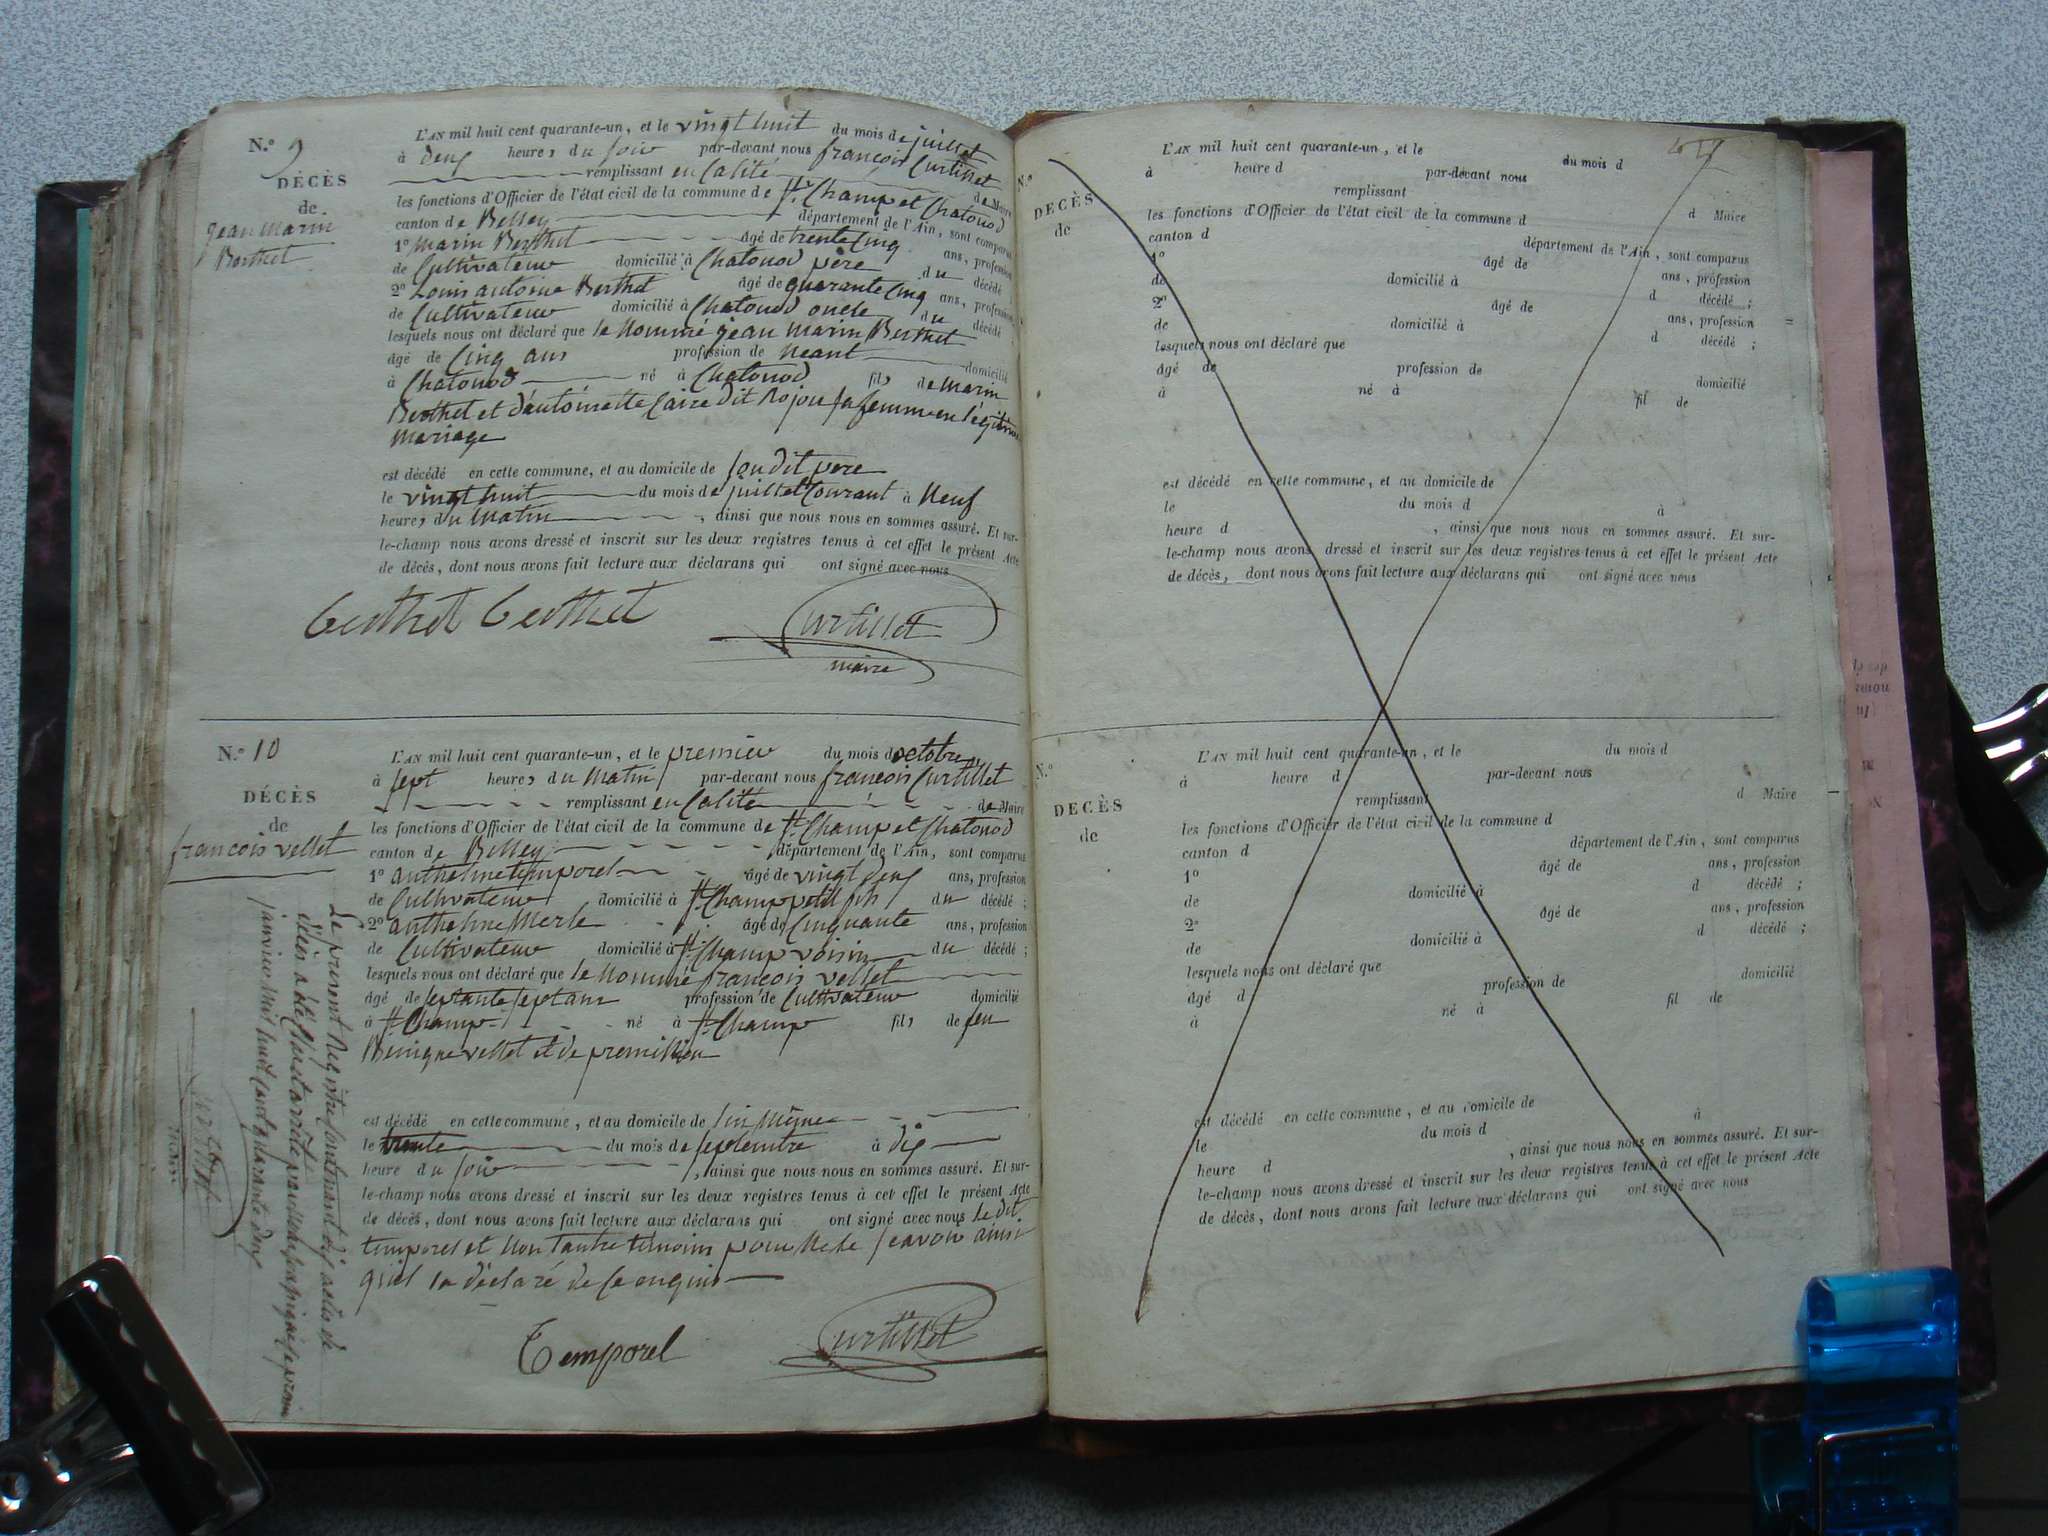 N.° 9
DÉCÈS
de
jean marin
Berthet
L'AN mil huit cent quarante-un, et le vingt huit du mois de juillet
à deux heures du soir par-devant nous françois Curtillet
remplissant en Calité de Maire
les fonctions d'Officier de l'état civil de la commune de St. Champ et Chatonod
canton de Belley département de l'Ain, sont comparus
1° Marin Berthet âgé de trente cinq ans, profession
de Cultivateur domicilié à Chatonod père du décédé ;
2° Louis antoine Berthet âgé de quarante cinq ans, profession
de Cultivateur domicilié à Chatonod oncle du décédé ;
lesquels nous ont déclaré que le Nommé jean marin Berthet
âgé de Cinq ans profession de Neant domicilié
à Chatonod né à Chatonod fils de Marin
Berthet et d'antoinette Caire dit Rojou sa femme en légitime
mariage
est décédé en cette commune, et au domicile de son dit père
le vingt huit du mois de juillet Courant à Neuf
heures du Matin , ainsi que nous nous en sommes assuré. Et sur-
le-champ nous avons dressé et inscrit sur les deux registres tenus à cet effet le présent Acte
de décès, dont nous avons fait lecture aux déclarans qui ont signé avec nous
berthet berthet Curtillet
maire
N.° 10
DÉCÈS
de
françois vellet
L'AN mil huit cent quarante-un, et le premier du mois d'octobre
à sept heures du Matin par-devant nous françois Curtillet
remplissant en Calité de Maire
les fonctions d'Officier de l'état civil de la commune de St. Champ et Chatonod
canton de Belley département de l'Ain, sont comparus
1° anthelme temporel âgé de vingt deux ans, profession
de Cultivateur domicilié à St. Champ petit fils du décédé ;
2° anthelme Merle âgé de Cinquante ans, profession
de Cultivateur domicilié à St. Champ voisin du décédé ;
lesquels nous ont déclaré que le Nommé françois vellet
âgé de septante sept ans profession de Cultivateur domicilié
à St. Champ né à St. Champ fils de feu
Benigne vellet et de premillieu
est décédé en cette commune, et au domicile de lui Même
le trente du mois de septembre à dix
heure du soir , ainsi que nous nous en sommes assuré. Et sur-
le-champ nous avons dressé et inscrit sur les deux registres tenus à cet effet le présent Acte
de décès, dont nous avons fait lecture aux déclarans qui ont signé avec nous le dit
temporel et Non l'autre témoin pour Ne le savoir ainsi
qu'il l'a déclaré de ce enquis
Temporel Curtillet
Le présent Registre Contenant dix actes de
décès a été Clos et arrêté par le maire soussigné le premier
janvier mil huit cent quarante deux
N.°
DECÈS
de
L'AN mil huit cent quarante-un, et le du mois d
à heure d par-devant nous
remplissant d Maire
les fonctions d'Officier de l'état civil de la commune d
canton d département de l'Ain, sont comparus
1° âgé de ans, profession
de domicilié à d décédé ;
2° âgé de ans, profession
de domicilié à d décédé ;
lesquels nous ont déclaré que
âgé de profession de domicilié
à né à fil de
est décédé en cette commune, et au domicile de
le du mois d à
heure d , ainsi que nous nous en sommes assuré. Et sur-
le-champ nous avons dressé et inscrit sur les deux registres tenus à cet effet le présent Acte
de décès, dont nous avons fait lecture aux déclarans qui ont signé avec nous
N.°
DECÈS
de
L'AN mil huit cent quarante-un, et le du mois d
à heure d par-devant nous
remplissant d Maire
les fonctions d'Officier de l'état civil de la commune d
canton d département de l'Ain, sont comparus
1° âgé de ans, profession
de domicilié à d décédé ;
2° âgé de ans, profession
de domicilié à d décédé ;
lesquels nous ont déclaré que
âgé d profession de domicilié
à né à fil de
est décédé en cette commune, et au domicile de
le du mois d à
heure d , ainsi que nous nous en sommes assuré. Et sur-
le-champ nous avons dressé et inscrit sur les deux registres tenus à cet effet le présent Acte
de décès, dont nous avons fait lecture aux déclarans qui ont signé avec nous